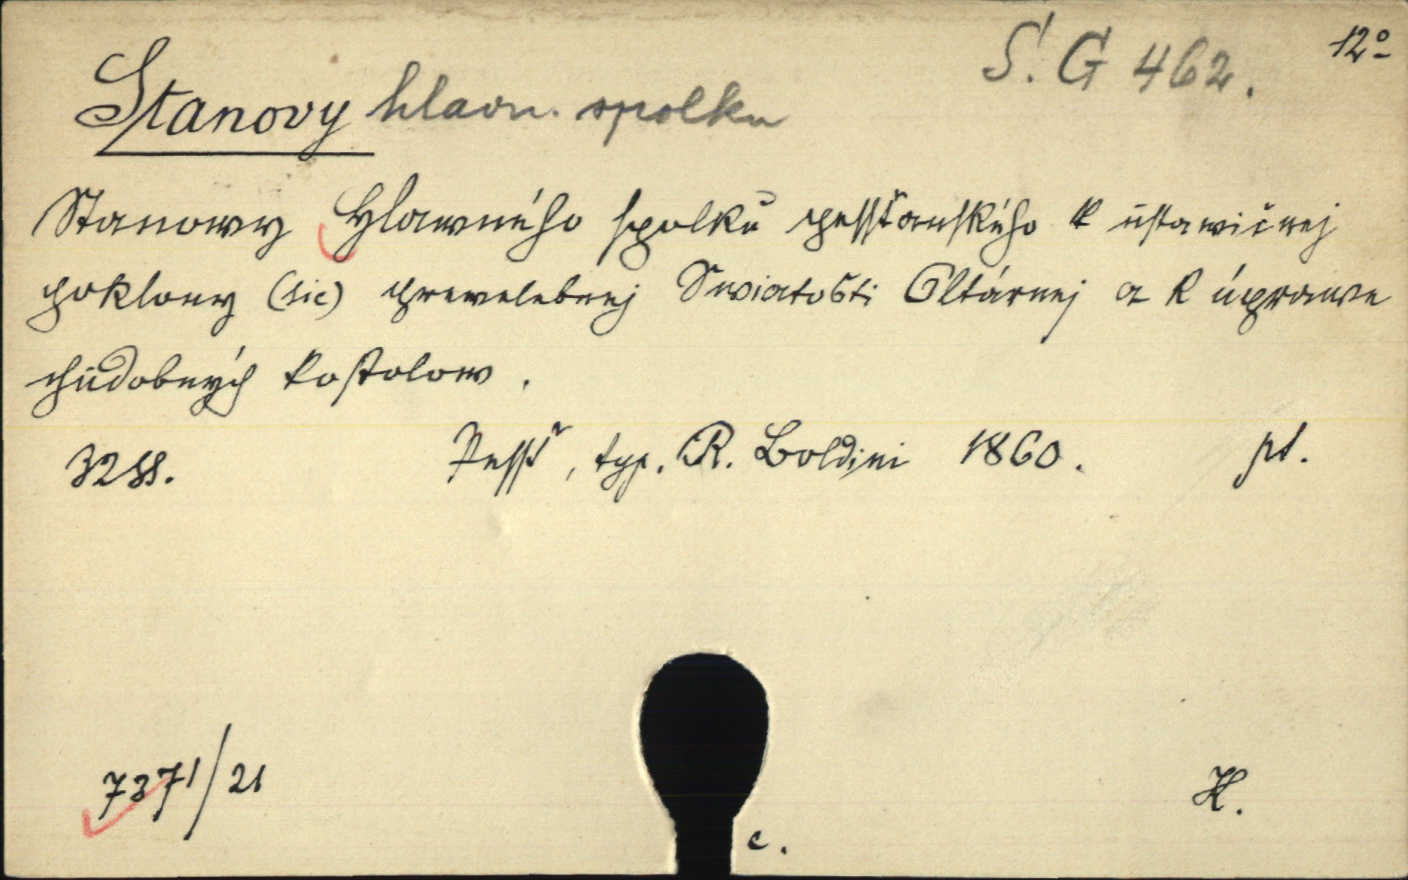 S. G 462. 12º
Stanovy hlavn. spolku
Stanowy Hlawného spolků pessťanského k ustawičnej
poklony (sic) prevelebnej Swiatosti Oltárnej a k úprawe
chudobných kostolow.
32 SS. Pessť, typ. R. Boldini 1860. pt.
7371/21 H.
c.